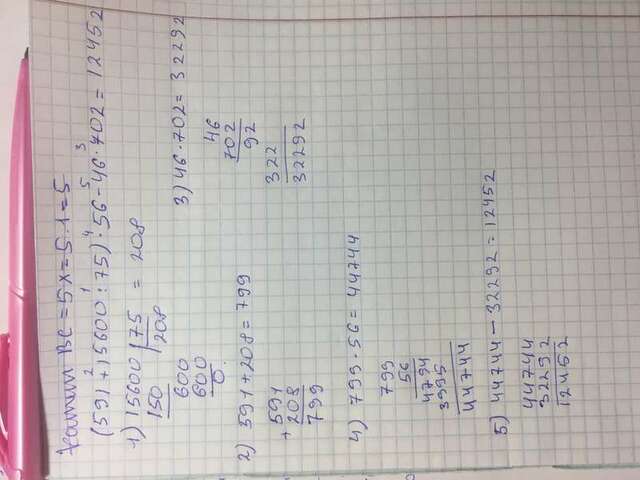 BC = 5x = 5·1 = 5
(591 + 15600 : 75) · 56 - 46 · 702 = 12452
2 1 4 5 3
1) 15600 | 75 = 208
150 208
600
600
0
2) 591 + 208 = 799
+ 591
208
799
3) 46 · 702 = 32292
46
702
92
322
32292
4) 799 · 56 = 44744
799
56
4794
3995
44744
5) 44744 - 32292 = 12452
44744
32292
12452